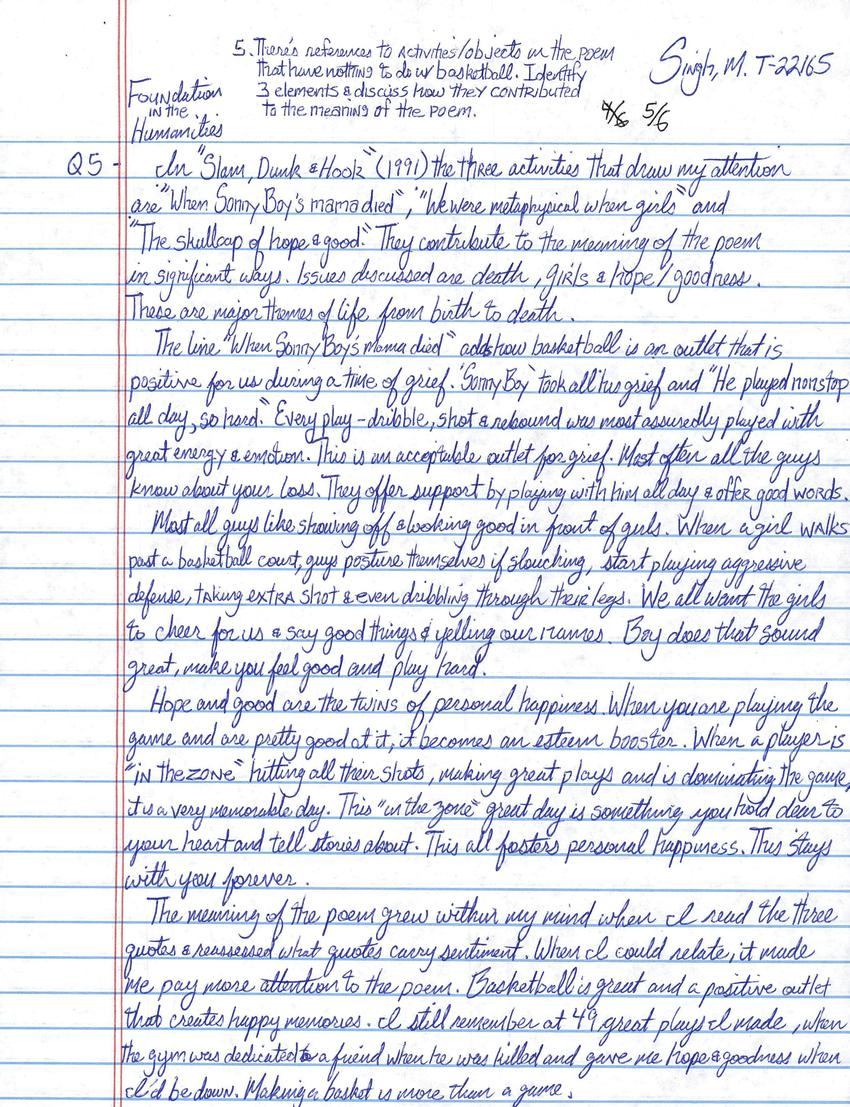 5. There's references to activities/objects in the poem
that have nothing to do w/ basketball. Identify
3 elements & discuss how they contributed
to the meaning of the poem.
Singh, M. T-22165
Foundation
in the
Humanities
5/6
Q5 - In "Slam, Dunk & Hook" (1991) the three activities that draw my attention
are "When Sonny Boy's mama died", "We were metaphysical when girls" and
"The skullcap of hope & good." They contribute to the meaning of the poem
in significant ways. Issues discussed are death, girls & hope/goodness.
These are major themes of life from birth to death.
The line "When Sonny Boy's mama died" adds how basketball is an outlet that is
positive for us during a time of grief. 'Sonny Boy' took all his grief and "He played nonstop
all day, so hard." Every play - dribble, shot & rebound was most assuredly played with
great energy & emotion. This is an acceptable outlet for grief. Most often all the guys
know about your loss. They offer support by playing with him all day & offer good words.
Most all guys like showing off & looking good in front of girls. When a girl walks
past a basketball court, guys posture themselves if slouching, start playing aggressive
defense, taking extra shot & even dribbling through their legs. We all want the girls
to cheer for us & say good things & yelling our names. Boy does that sound
great, make you feel good and play hard.
Hope and good are the twins of personal happiness. When you are playing the
game and are pretty good at it, it becomes an esteem booster. When a player is
"in the zone" hitting all their shots, making great plays and is dominating the game,
it is a very memorable day. This "in the zone" great day is something you hold dear to
your heart and tell stories about. This all fosters personal happiness. This stays
with you forever.
The meaning of the poem grew within my mind when I read the three
quotes & reassessed what quotes carry sentiment. When I could relate, it made
me pay more attention to the poem. Basketball is great and a positive outlet
that creates happy memories. I still remember at 49, great plays I made, when
the gym was dedicated to a friend when he was killed and gave me hope & goodness when
I'd be down. Making a basket is more than a game.